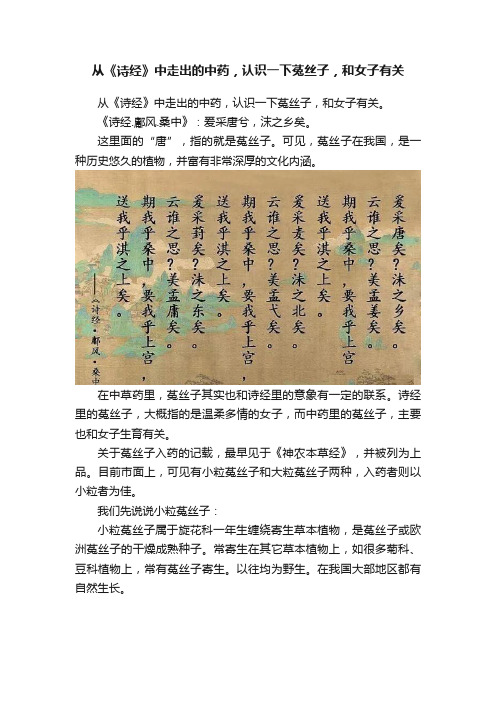 从《诗经》中走出的中药，认识一下菟丝子，和女子有关
从《诗经》中走出的中药，认识一下菟丝子，和女子有关。
《诗经.鄘风.桑中》：爰采唐兮，沫之乡矣。
这里面的“唐”，指的就是菟丝子。可见，菟丝子在我国，是一
种历史悠久的植物，并富有非常深厚的文化内涵。
爰采唐矣？沫之乡矣。
云谁之思？美孟姜矣。
期我乎桑中，要我乎上宫
送我乎淇之上矣。
爰采麦矣？沫之北矣。
云谁之思？美孟弋矣。
期我乎桑中，要我乎上宫，
送我乎淇之上矣。
爰采葑矣？沫之东矣。
云谁之思？美孟庸矣。
期我乎桑中，要我乎上宫，
送我乎淇之上矣。
——《诗经·鄘风·桑中
在中草药里，菟丝子其实也和诗经里的意象有一定的联系。诗经
里的菟丝子，大概指的是温柔多情的女子，而中药里的菟丝子，主要
也和女子生育有关。
关于菟丝子入药的记载，最早见于《神农本草经》，并被列为上
品。目前市面上，可见有小粒菟丝子和大粒菟丝子两种，入药者则以
小粒者为佳。
我们先说说小粒菟丝子：
小粒菟丝子属于旋花科一年生缠绕寄生草本植物，是菟丝子或欧
洲菟丝子的干燥成熟种子。常寄生在其它草本植物上，如很多菊科、
豆科植物上，常有菟丝子寄生。以往均为野生。在我国大部地区都有
自然生长。